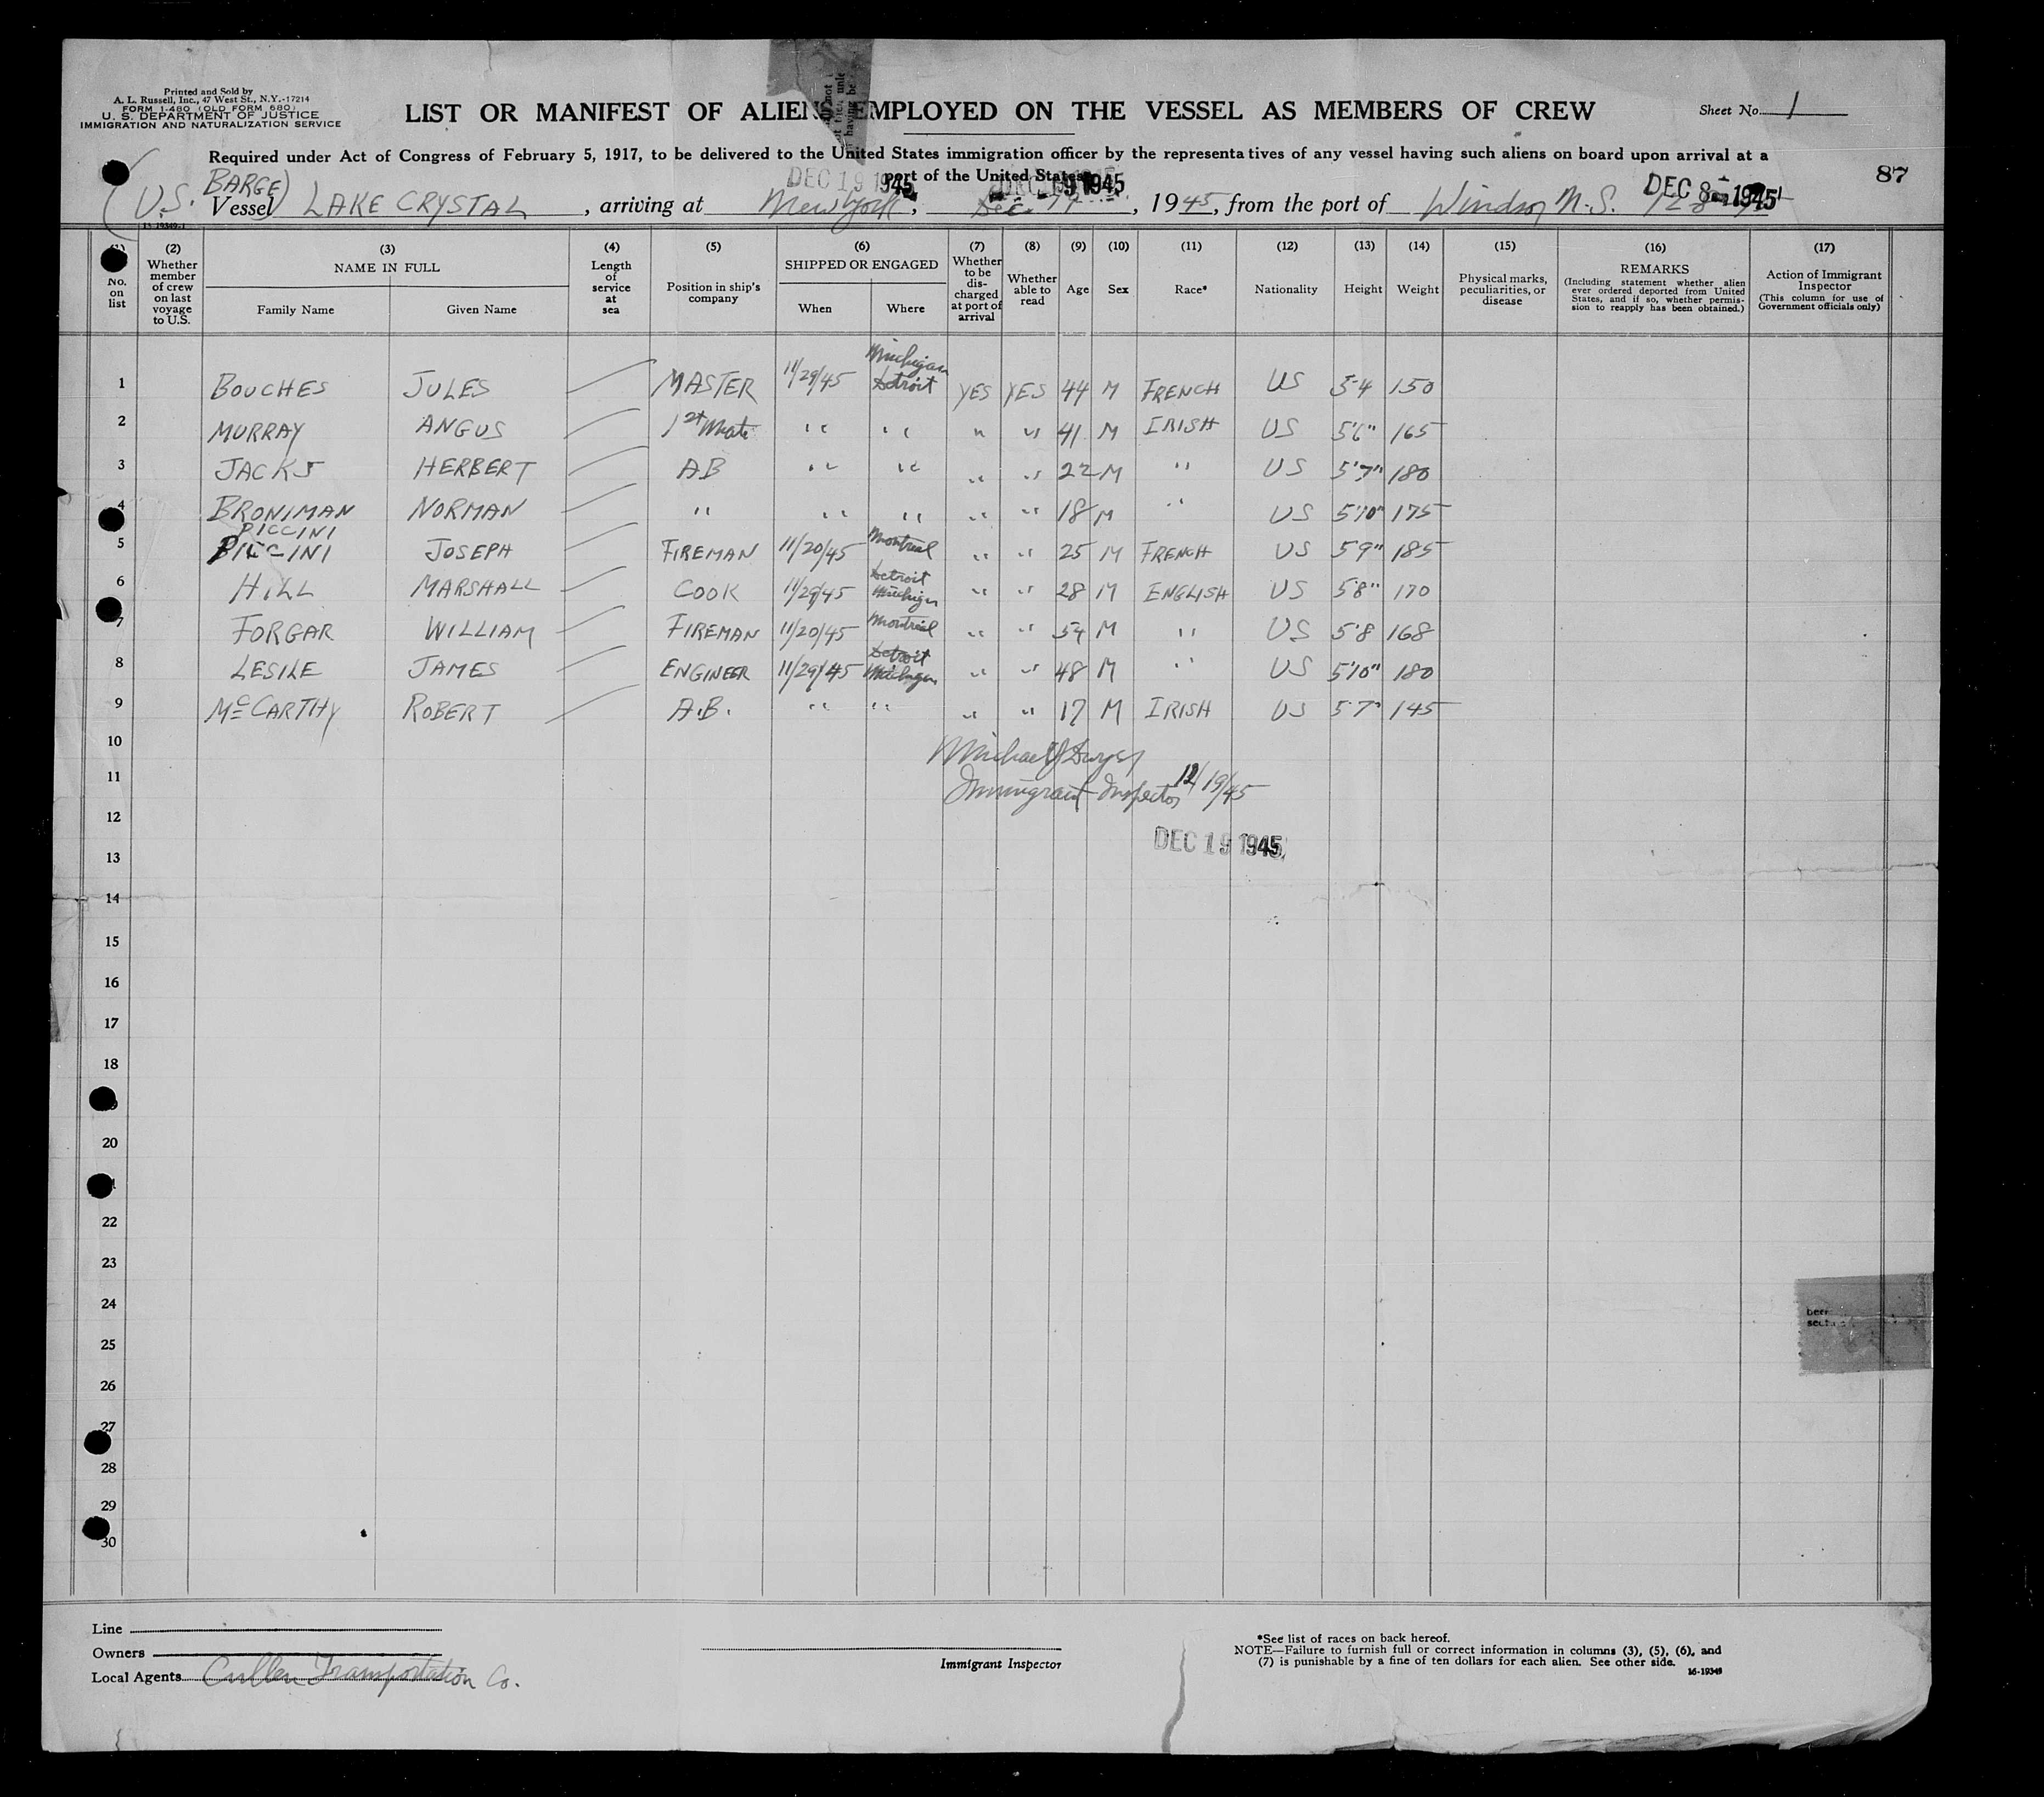 Printed and Sold by
A. L. Russell, Inc., 47 West St., N.Y.-17214
FORM I-480 (OLD FORM 680)
U. S. DEPARTMENT OF JUSTICE
IMMIGRATION AND NATURALIZATION SERVICE
LIST OR MANIFEST OF ALIENS EMPLOYED ON THE VESSEL AS MEMBERS OF CREW
Sheet No. 1
Required under Act of Congress of February 5, 1917, to be delivered to the United States immigration officer by the representatives of any vessel having such aliens on board upon arrival at a
port of the United States
87
DEC 19 1945
DEC 8 1945
U.S. BARGE)
Vessel LAKE CRYSTAL, arriving at New York, Dec. 1945, from the port of Windsor N.S.
(2) (3) (4) (5) (6) (7) (8) (9) (10) (11) (12) (13) (14) (15) (16) (17)
No. on list
Whether member of crew on last voyage to U.S.
NAME IN FULL
Family Name Given Name
Length of service at sea
Position in ship's company
SHIPPED OR ENGAGED
When Where
Whether to be discharged at port of arrival
Whether able to read
Age Sex Race* Nationality Height Weight
Physical marks, peculiarities, or disease
REMARKS
(Including statement whether alien ever ordered deported from United States, and if so, whether permission to reapply has been obtained.)
Action of Immigrant Inspector
(This column for use of Government officials only)
1 BOUCHES JULES MASTER 11/29/45 Michigan Detroit YES YES 44 M FRENCH US 5-4 150
2 MURRAY ANGUS 1st Mate " " " " 41 M IRISH US 5'6" 165
3 JACKS HERBERT AB " " " " 22 M " US 5'7" 180
4 BRONIMAN NORMAN " " " " " 18 M " US 5'10" 175
PICCINI
5 PICCINI JOSEPH FIREMAN 11/20/45 Montreal " " 25 M FRENCH US 5 9" 185
6 HILL MARSHALL COOK 11/29/45 Detroit Michigan " " 28 M ENGLISH US 5'8" 170
7 FORGAR WILLIAM FIREMAN 11/20/45 Montreal " " 54 M " US 5'8 168
8 LESILE JAMES ENGINEER 11/29/45 Detroit Michigan " " 48 M " US 5'10" 180
9 McCARTHY ROBERT A.B. " " " " 17 M IRISH US 5 7" 145
10
11
Immigrant Inspector 12/19/45
12
DEC 19 1945
13
14
15
16
17
18
20
22
23
24
25
26
27
28
29
30
Line
Owners
Local Agents Cullen Transportation Co.
Immigrant Inspector
*See list of races on back hereof.
NOTE—Failure to furnish full or correct information in columns (3), (5), (6), and
(7) is punishable by a fine of ten dollars for each alien. See other side.
16-19349